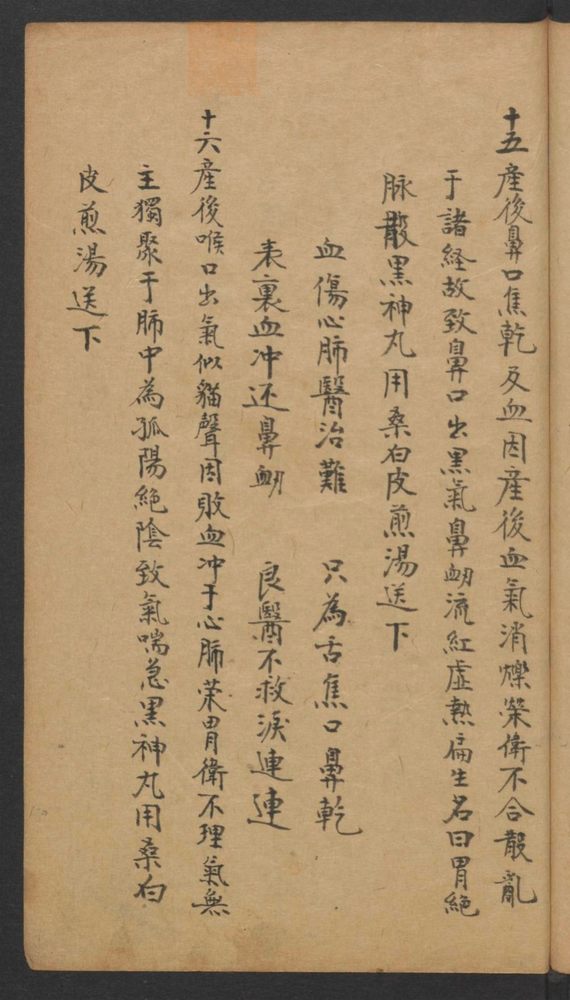 十五產後鼻口焦乾及血因產後血氣消爍榮衛不合散亂
于諸経故致鼻口出黑氣鼻衂流紅虛熱扁生名曰胃絕
脉散黑神丸用桑白皮煎湯送下
血傷心肺醫治難　只為舌焦口鼻乾
表裏血冲还鼻衂　良醫不救淚連連
十六產後喉口出氣似貓聲因敗血冲于心肺荣胃衛不理氣無
主獨聚于肺中為孤陽絕陰致氣喘急黑神丸用桑白
皮煎湯送下